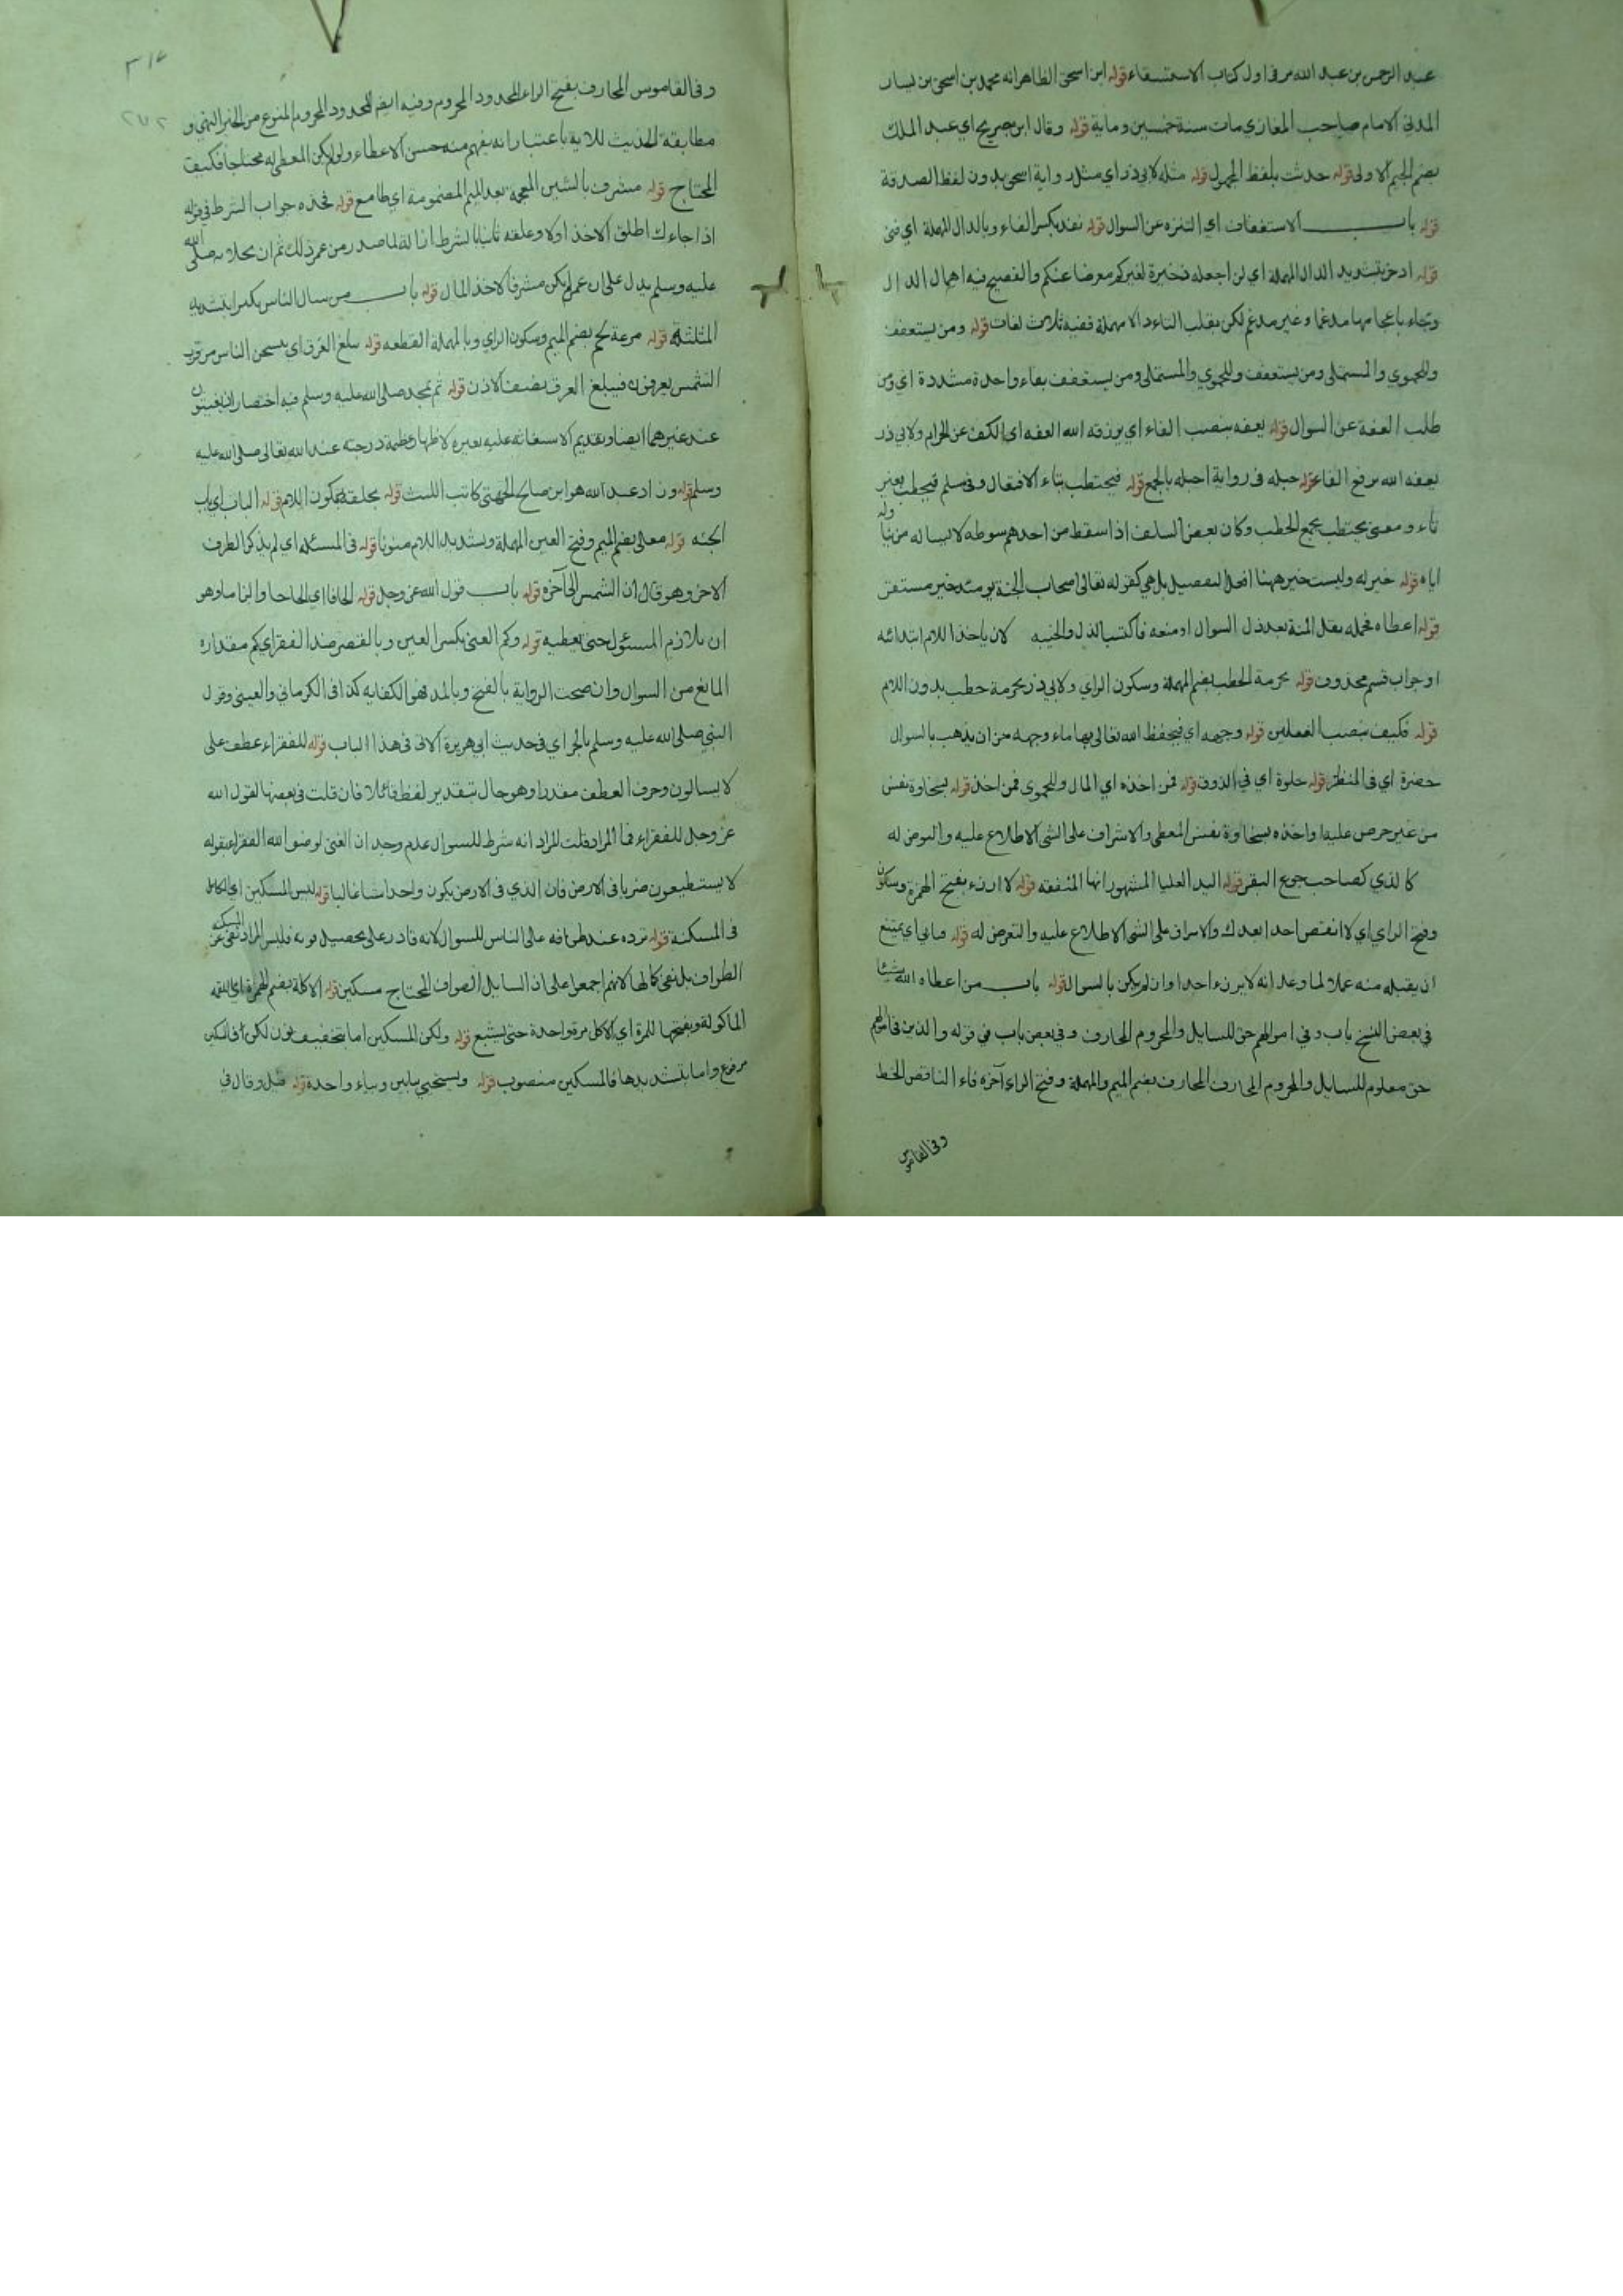 عبد الرحمن بن عبد الله مر في اول كتاب الاستسقاء قوله ابن اسحق الظاهر انه محمد بن اسحق بن يسار
المدني الامام صاحب المغازي مات سنة خمسين وماية قوله وقال ابن جريج اي عبد الملك
بضم الجيم الاولى قوله حدثت بلفظ المجهول قوله مثله لابي ذر اي مثل رواية اسحق بدون لفظ الصدقة
قوله باب الاستعفاف اي التنزه عن السوال قوله نفد بكسر الفاء وبالدال المهملة اي فني
قوله ادخره بتشديد الدال المهملة اي لن اجعله ذخيرة لغيركم معرضا عنكم والفصيح فيه اهمال الدال
وجاء باعجامها مدغما وغير مدغم لكن بقلب التاء دالا مهملة ففيه ثلاث لغات قوله ومن يستعفف
وللحموي والمستملي ومن يستعفف وللحموي والمستملي ومن يستعفف بفاء واحدة مشددة اي ومن
طلب العفة عن السوال قوله يعفه بنصب الفاء اي يرزقه الله العفه اي الكف عن الحرام ولابي ذر
يعفه الله برفع الفاء قوله حبله في رواية احبله بالجمع قوله فيحتطب بتاء الافتعال وفي مسلم فيحطب بغير
تاء ومعنى يحتطب يجمع الحطب وكان بعض السلف اذا سقط من احدهم سوطه لا يسال من يناوله
اياه قوله خير له وليست خير ههنا افعل التفضيل بل هي كقوله تعالى اصحاب الجنة يومئذ خير مستقرا
قوله اعطاه فحمله ثقل المنة بعد ذل السوال او منعه فاكتسب الذل والخيبه لان ياخذ اللام ابتدائه
او جواب قسم محذوف قوله بحزمة الحطب بضم المهملة وسكون الزاي ولابي ذر بحزمة حطب بدون اللام
قوله فيكف بنصب الفعلين قوله وجهه اي فيحفظ الله تعالى بها ماء وجهه من ان يذهب بالسوال
خضرة اي في المنظر قوله حلوة اي في الذوق قوله فمن اخذه اي المال وللحموي فمن اخذ قوله بسخاوة نفس
من غير حرص عليه او اخذه بسخاوة نفس المعطي والاشراف على الشي الاطلاع عليه والتعرض له
كالذي كصاحب جوع البقر قوله اليد العليا المشهور انها المنفقه قوله لا ارزء بفتح الهمزة وسكون
وفتح الزاي اي لا انقص احدا بعدك والاشراف على الشي الاطلاع عليه والتعرض له قوله فيابى اي يمتنع
ان يقبله منه عملا لما وعد انه لا يرزء احدا وان لم يكن بالسوال قوله باب من اعطاه الله شيئا
في بعض النسخ باب وفي اموالهم حق للسايل والمحروم المحارف وفي بعض باب في قوله والذين في اموالهم
حق معلوم للسايل والمحروم المحارف المحارف بضم الميم والمهملة وفتح الراء آخره فاء الناقص الحظ
وفي القاموس
٣١٤
٢٧٢
وفي القاموس المحارف بفتح الراء المحدود المحروم وفيه ايضا المحدود المحروم الممنوع من الخير انتهى و
مطابقة الحديث للاية باعتبار انه يفهم منه حسن الاعطاء ولو لم يكن المعطى له محتاجا فكيف
المحتاج قوله مشرف بالشين المعجمة بعد الميم المضمومة اي طامع قوله فخذه جواب الشرط في قوله
اذا جاءك اطلق الاخذ اولا وعلقه ثانيا بالشرط صدر من عمر ذلك ثم ان صلى الله
عليه وسلم يدل على ان عمر لم يكن مشرفا لاخذ المال قوله باب من سال الناس تكثرا بتشديد
المثلثة قوله مزعة لحم بضم الميم وسكون الزاي وبالمهملة القطعه قوله يبلغ العرق اي يسخن الناس من قرب
الشمس يعرقون فيبلغ العرق نصف الاذن قوله ثم بمحمد صلى الله عليه وسلم فيه اختصار اذ يستغيثون
عند غيرهما ايضا وتقديم الاستغاثه عليه بغيره لاظهار عظمة درجته عند الله تعالى صلى الله عليه
وسلم قوله وزاد عبد الله هو ابن صالح الجهني كاتب الليث قوله بحلقة بسكون اللام قوله الباب اي باب
الجنه قوله معلى بضم الميم وفتح العين المهملة وتشديد اللام منونا قوله في المسئله اي لم يذكر الطرف
الاخر وهو قال ان الشمس الى آخره قوله باب قول الله عز وجل قوله الحافا اي الحاحا والزاما وهو
ان يلازم المسئول حتى يعطيه قوله وكم الغنى بكسر الغين وبالقصر ضد الفقر اي كم مقداره
المانع من السوال وان صحت الرواية بالفتح وبالمد فهو الكفايه كذا في الكرماني والعيني وقول
النبي صلى الله عليه وسلم بالجر اي في حديث ابي هريرة الاتي في هذا الباب قوله للفقراء عطف على
لا يسالون وحرف العطف مقدر او هو حال بتقدير لفظ قائلا فان قلت في بعضها لقول الله
عز وجل للفقراء فما المراد قلت المراد انه شرط للسوال عدم وجدان الغنى لوصف الله الفقراء بقوله
لا يستطيعون ضربا في الارض فان الذي في الارض يكون واحدا غالبا قوله ليس المسكين اي الكامل
في المسكنة قوله ترده عند طوافه على الناس للسوال لانه قادر على تحصيل قوته فليس المراد نفي المسكنه عن
الطواف بل نفي كمالها لانهم اجمعوا على ان السايل الطواف المحتاج مسكين قوله الاكلة بضم الهمزة اي اللقمه
الماكولة وبفتحها للمرة اي الاكل مرة واحدة حتى يشبع قوله ولكن المسكين اما بتخفيف نون لكن فالمسكين
مرفوع واما بتشديدها فالمسكين منصوب قوله ويستحيي بيايين وبياء واحدة قوله قيل وقال في